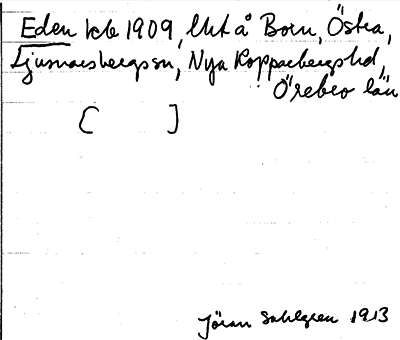 Eden kb 1909, lht å Born, Östra,
Ljusnarsbergs sn, Nya Kopparbergs hd,
Örebro län
[ ]
Jöran Sahlgren 1913